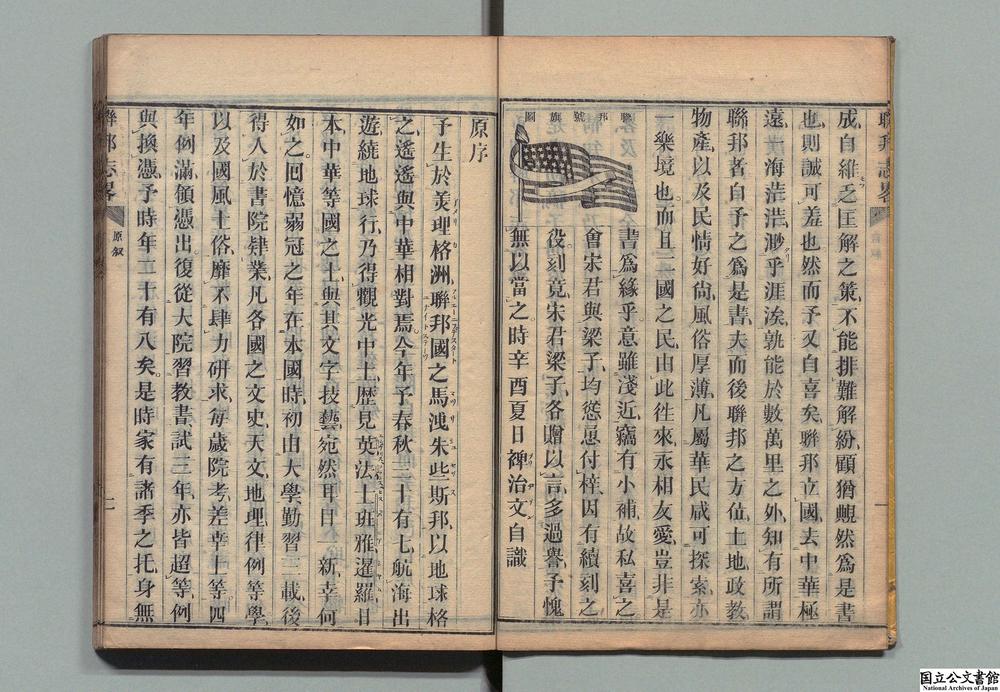 聯邦志畧
成自維乏匡解之策不能排難解紛顧猶覥然爲是書
也則誠可羞也然而予又自喜矣聯邦立國去中華極
遠海浩渺乎涯涘孰能於數萬里之外知有所謂
聯邦者自予之爲是書夫而後聯邦之方位土地政敎
物產以及民情好尙風俗厚薄凡屬華民咸可探索亦
一樂境也而且二國之民由此徃來永相友愛豈非是
聯邦號旗圖
書爲緣乎意雖淺近竊有小補故私喜之
會宋君與梁子均慫恿付梓因有續刻之
役刻竟宋君梁子各贈以言多過譽予愧
無以當之時辛酉夏日裨治文自識
原序
予生於美理格洲聯邦國之馬洩朱些斯邦以地球格
之遙遙與中華相對焉今年予春秋二十有七航海出
遊繞地球行乃得觀光中土歷見英法士班雅暹羅日
本中華等國之士與其文字技藝宛然耳目一新幸何
如之囘憶弱冠之年在本國時初由大學勤習三載後
得入於書院肄業凡各國之文史天文地理律例等學
以及國風土俗靡不肆力研求每歲院考差幸上等四
年例滿領憑出復從大院習敎書試三年亦皆超等例
與換憑予時年二十有八矣是時家有諸季之托身無
聯邦志畧
原叙